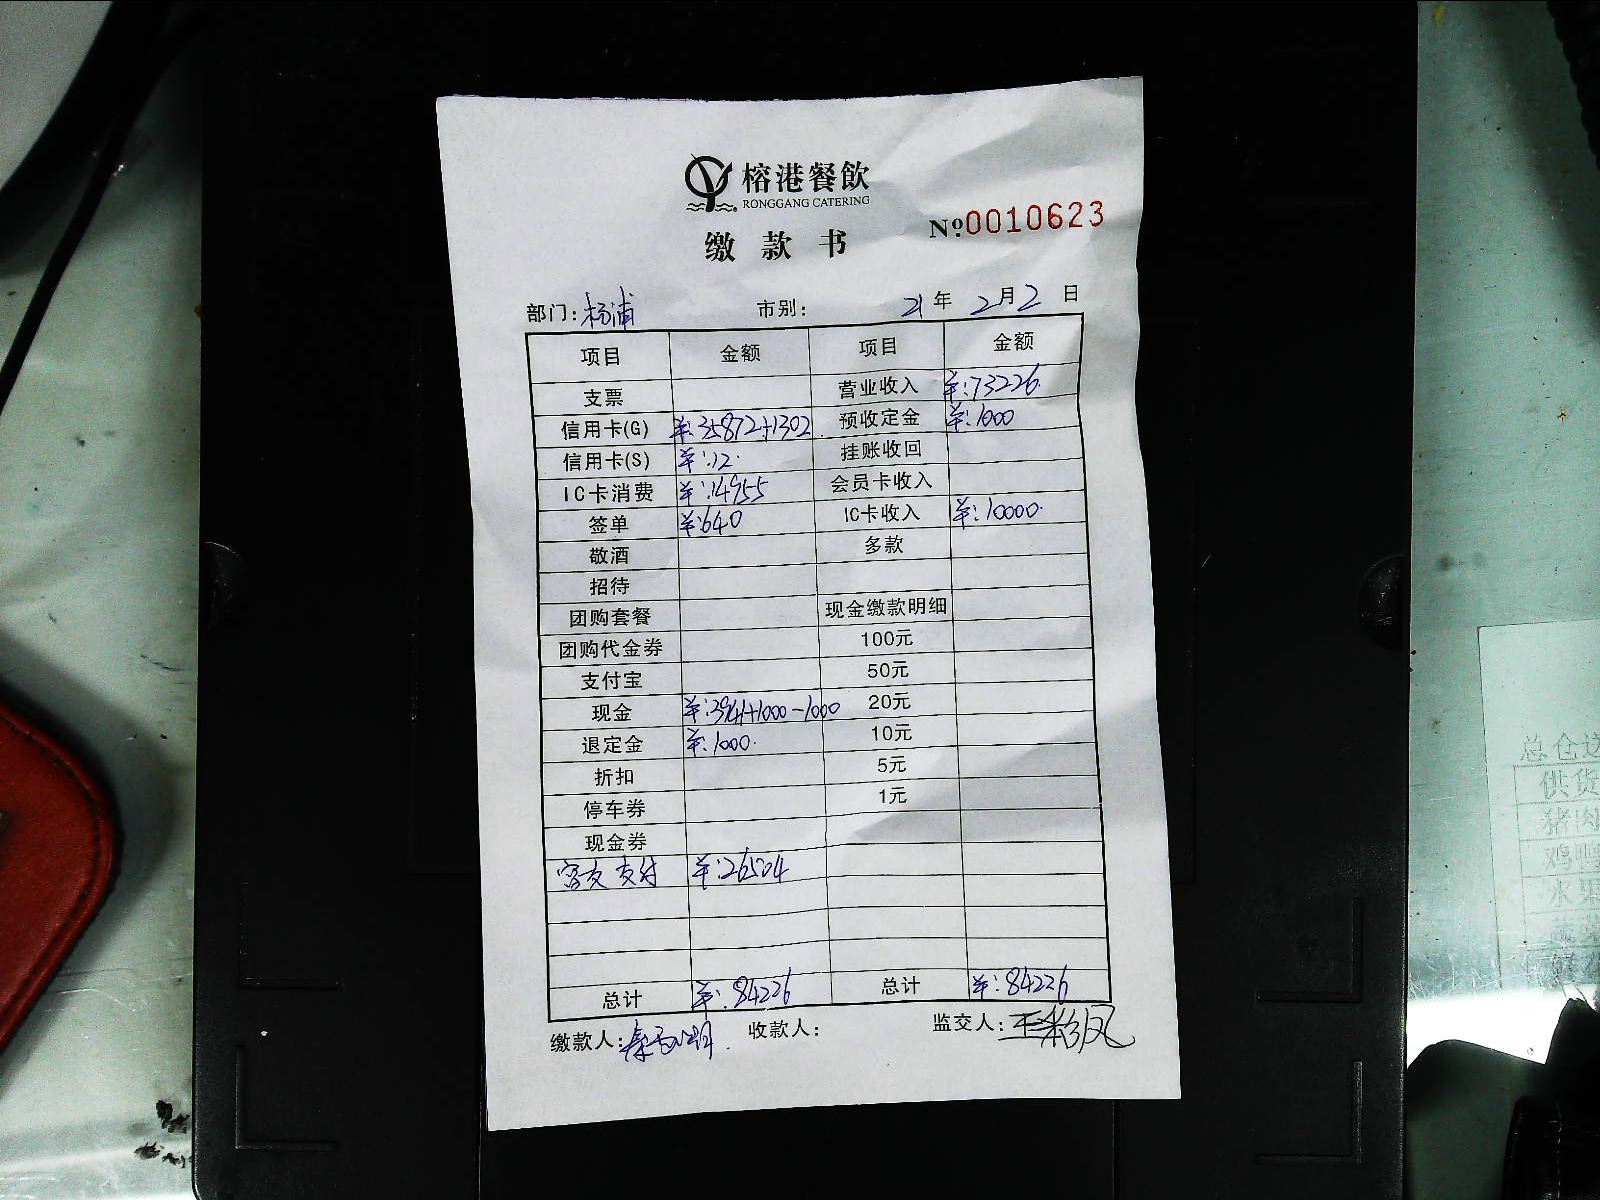 榕港餐飲
RONGGANG CATERING
№0010623
缴款书
部门：杨浦 市别： 21年2月2日
项目 金额 项目 金额
支票 营业收入 ¥:73226.
信用卡(G) ¥:35872+1302 预收定金 ¥:1000
信用卡(S) ¥:12. 挂账收回
IC卡消费 ¥:14955 会员卡收入
签单 ¥:640 IC卡收入 ¥:10000.
敬酒 多款
招待
团购套餐 现金缴款明细
团购代金券 100元
支付宝 50元
现金 ¥:3941+1000-1000 20元
退定金 ¥:1000. 10元
折扣 5元
停车券 1元
现金券
支付 ¥:26504
总计 ¥:84226 总计 ¥:84226
缴款人： 收款人： 监交人：王彩凤
总仓
供货
猪肉
鸡鸭
水果
蔬菜